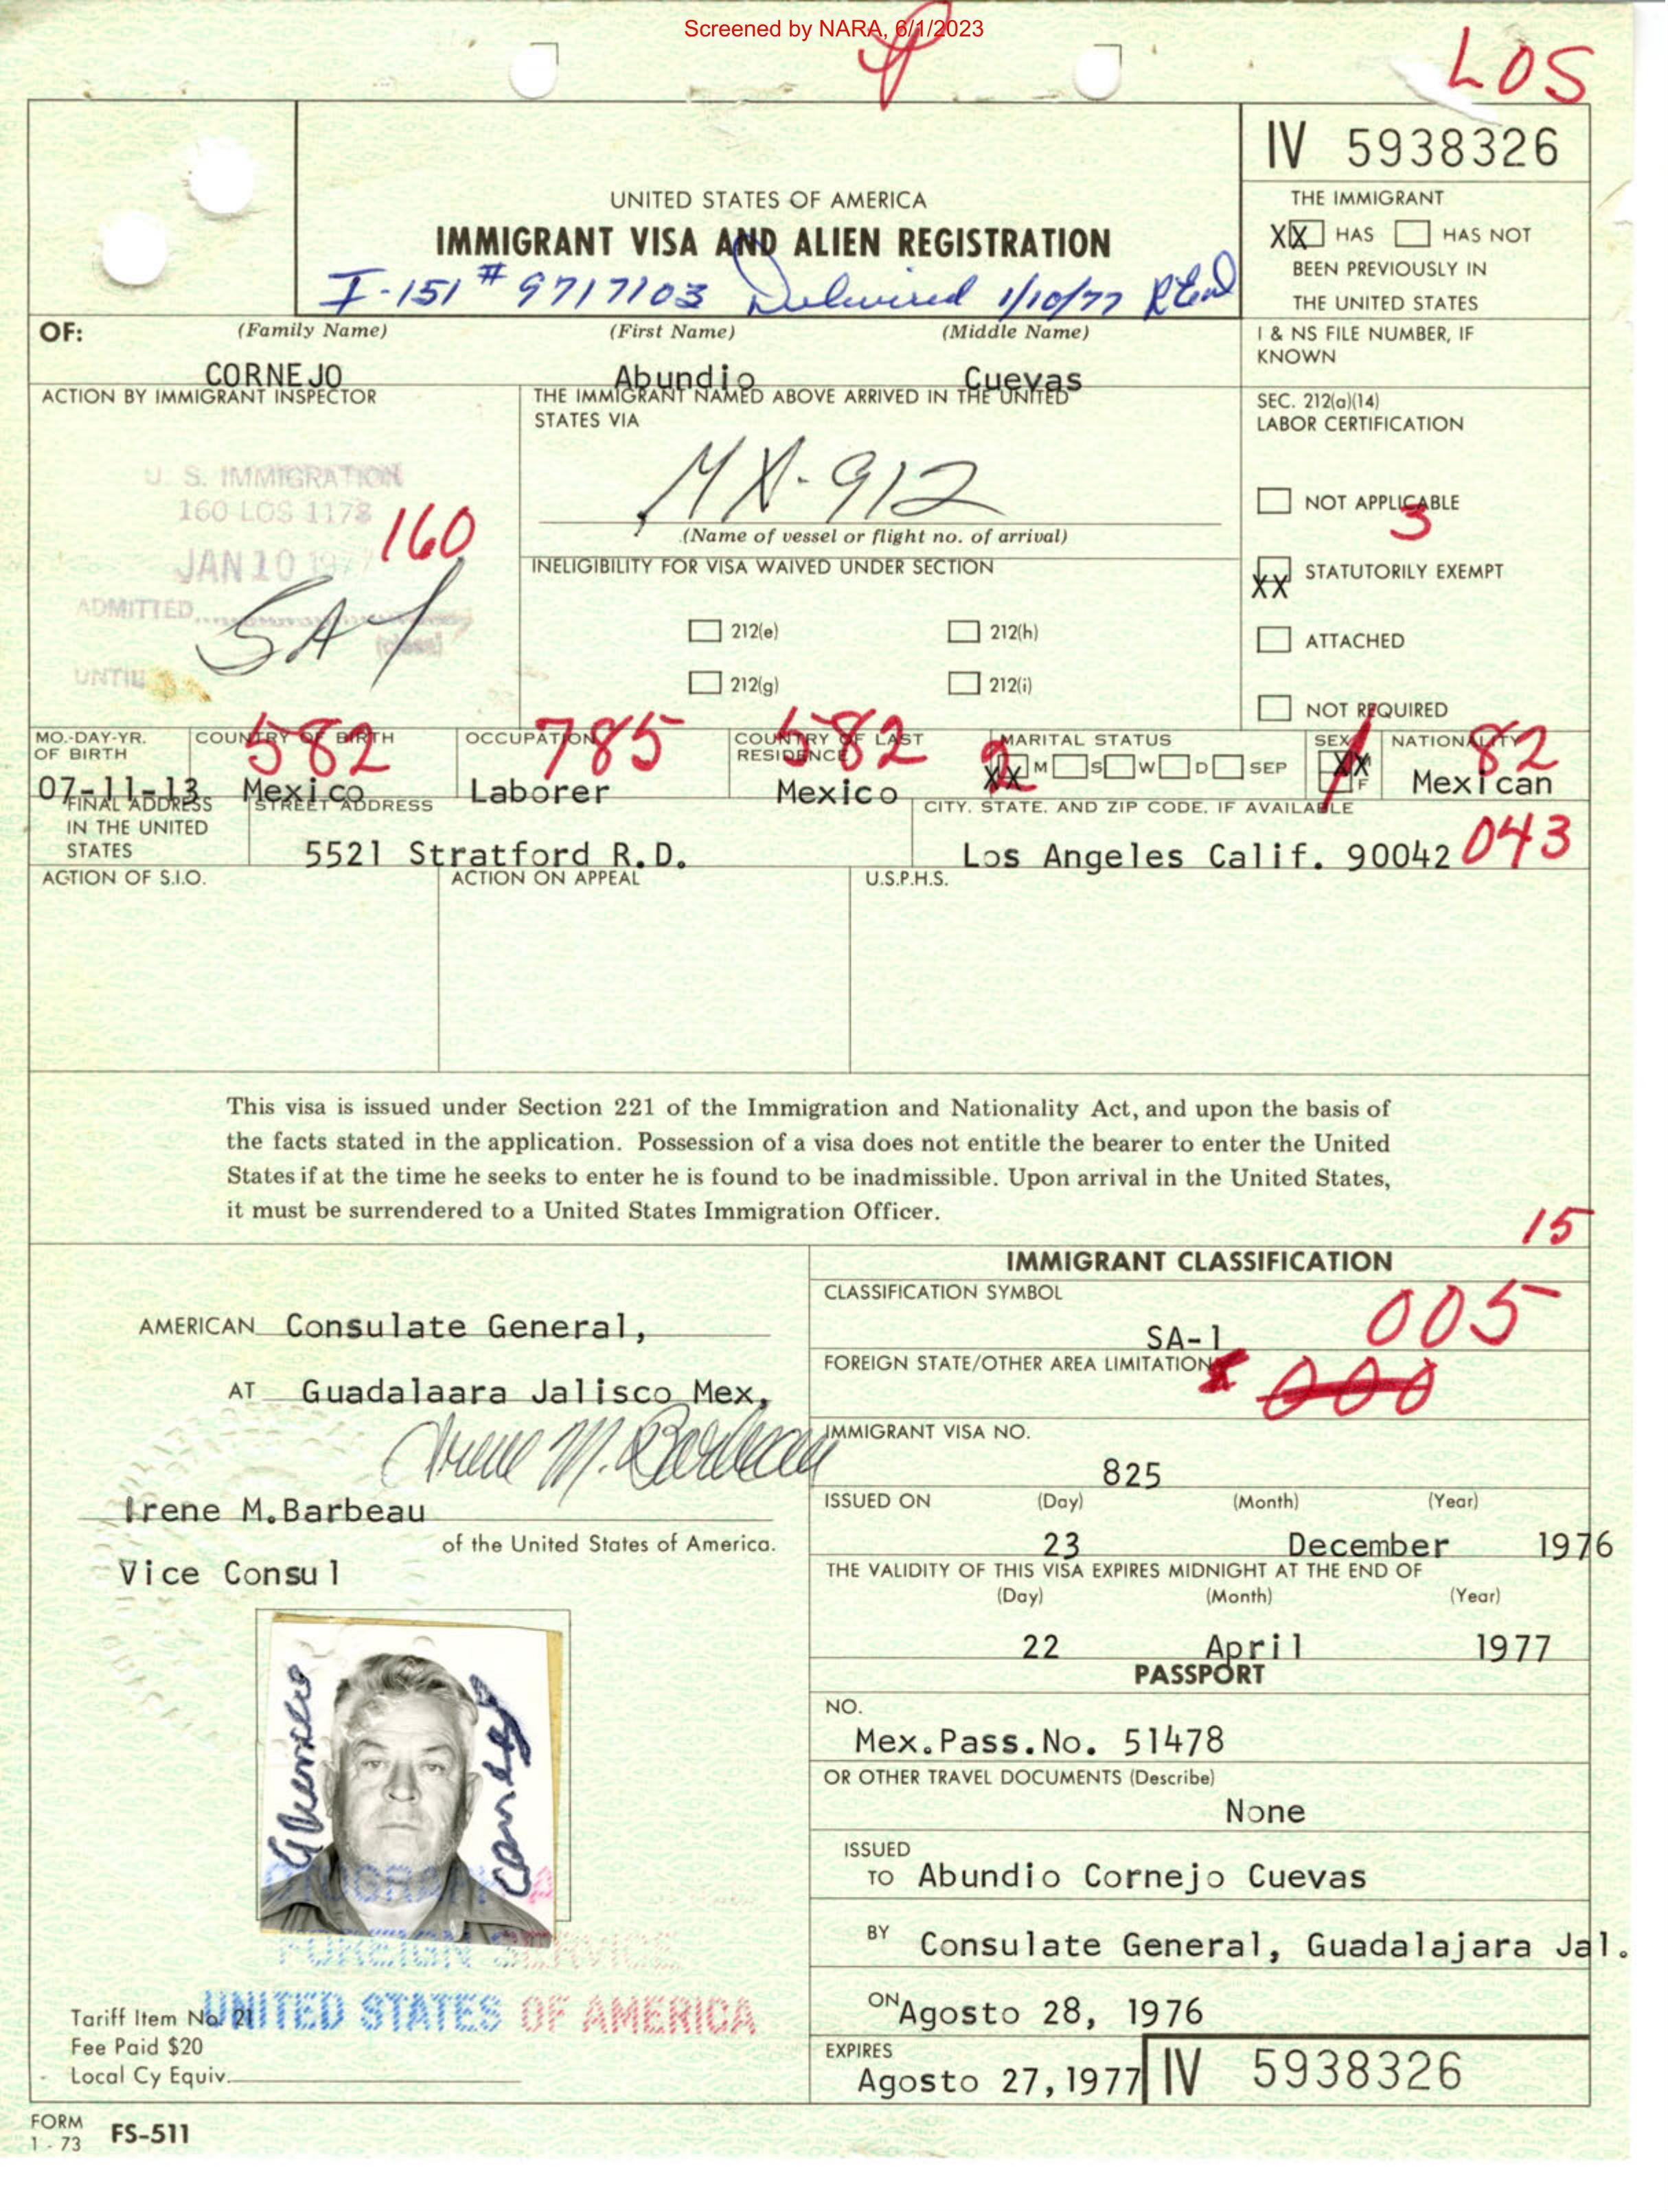 Screened by NARA, 6/1/2023
LOS
IV 5938326
UNITED STATES OF AMERICA
IMMIGRANT VISA AND ALIEN REGISTRATION
I-151 # 9717103 Delivered 1/10/77
THE IMMIGRANT
XX HAS HAS NOT
BEEN PREVIOUSLY IN
THE UNITED STATES
OF: (Family Name) (First Name) (Middle Name)
CORNEJO Abundio Cuevas
I & NS FILE NUMBER, IF
KNOWN
ACTION BY IMMIGRANT INSPECTOR
U. S. IMMIGRATION
160 LOS 1178
160
JAN 10 1977
ADMITTED
SA1
(class)
UNTIL
THE IMMIGRANT NAMED ABOVE ARRIVED IN THE UNITED
STATES VIA
MX-912
(Name of vessel or flight no. of arrival)
INELIGIBILITY FOR VISA WAIVED UNDER SECTION
212(e) 212(h)
212(g) 212(i)
SEC. 212(a)(14)
LABOR CERTIFICATION
NOT APPLICABLE
3
XX STATUTORILY EXEMPT
ATTACHED
NOT REQUIRED
MO.-DAY-YR.
OF BIRTH
07-11-13
COUNTRY OF BIRTH
582
Mexico
OCCUPATION
785
Laborer
COUNTRY OF LAST
RESIDENCE
582
Mexico
MARITAL STATUS
2
XX M S W D SEP
SEX
1
XX
F
NATIONALITY
82
Mexican
FINAL ADDRESS
IN THE UNITED
STATES
STREET ADDRESS
5521 Stratford R.D.
CITY, STATE, AND ZIP CODE, IF AVAILABLE
Los Angeles Calif. 90042 043
ACTION OF S.I.O. ACTION ON APPEAL U.S.P.H.S.
This visa is issued under Section 221 of the Immigration and Nationality Act, and upon the basis of
the facts stated in the application. Possession of a visa does not entitle the bearer to enter the United
States if at the time he seeks to enter he is found to be inadmissible. Upon arrival in the United States,
it must be surrendered to a United States Immigration Officer.
15
AMERICAN Consulate General,
AT Guadalaara Jalisco Mex,
Irene M. Barbeau
Irene M.Barbeau
of the United States of America.
Vice Consul
Abundio
Cornejo
FOREIGN SERVICE
UNITED STATES OF AMERICA
Tariff Item No. 21
Fee Paid $20
Local Cy Equiv.
IMMIGRANT CLASSIFICATION
CLASSIFICATION SYMBOL
005
SA-1
FOREIGN STATE/OTHER AREA LIMITATION
000
IMMIGRANT VISA NO.
825
ISSUED ON (Day) (Month) (Year)
23 December 1976
THE VALIDITY OF THIS VISA EXPIRES MIDNIGHT AT THE END OF
(Day) (Month) (Year)
22 April 1977
PASSPORT
NO.
Mex.Pass.No. 51478
OR OTHER TRAVEL DOCUMENTS (Describe)
None
ISSUED
TO Abundio Cornejo Cuevas
BY Consulate General, Guadalajara Jal.
ON Agosto 28, 1976
EXPIRES
Agosto 27,1977
IV 5938326
FORM
1 - 73 FS-511